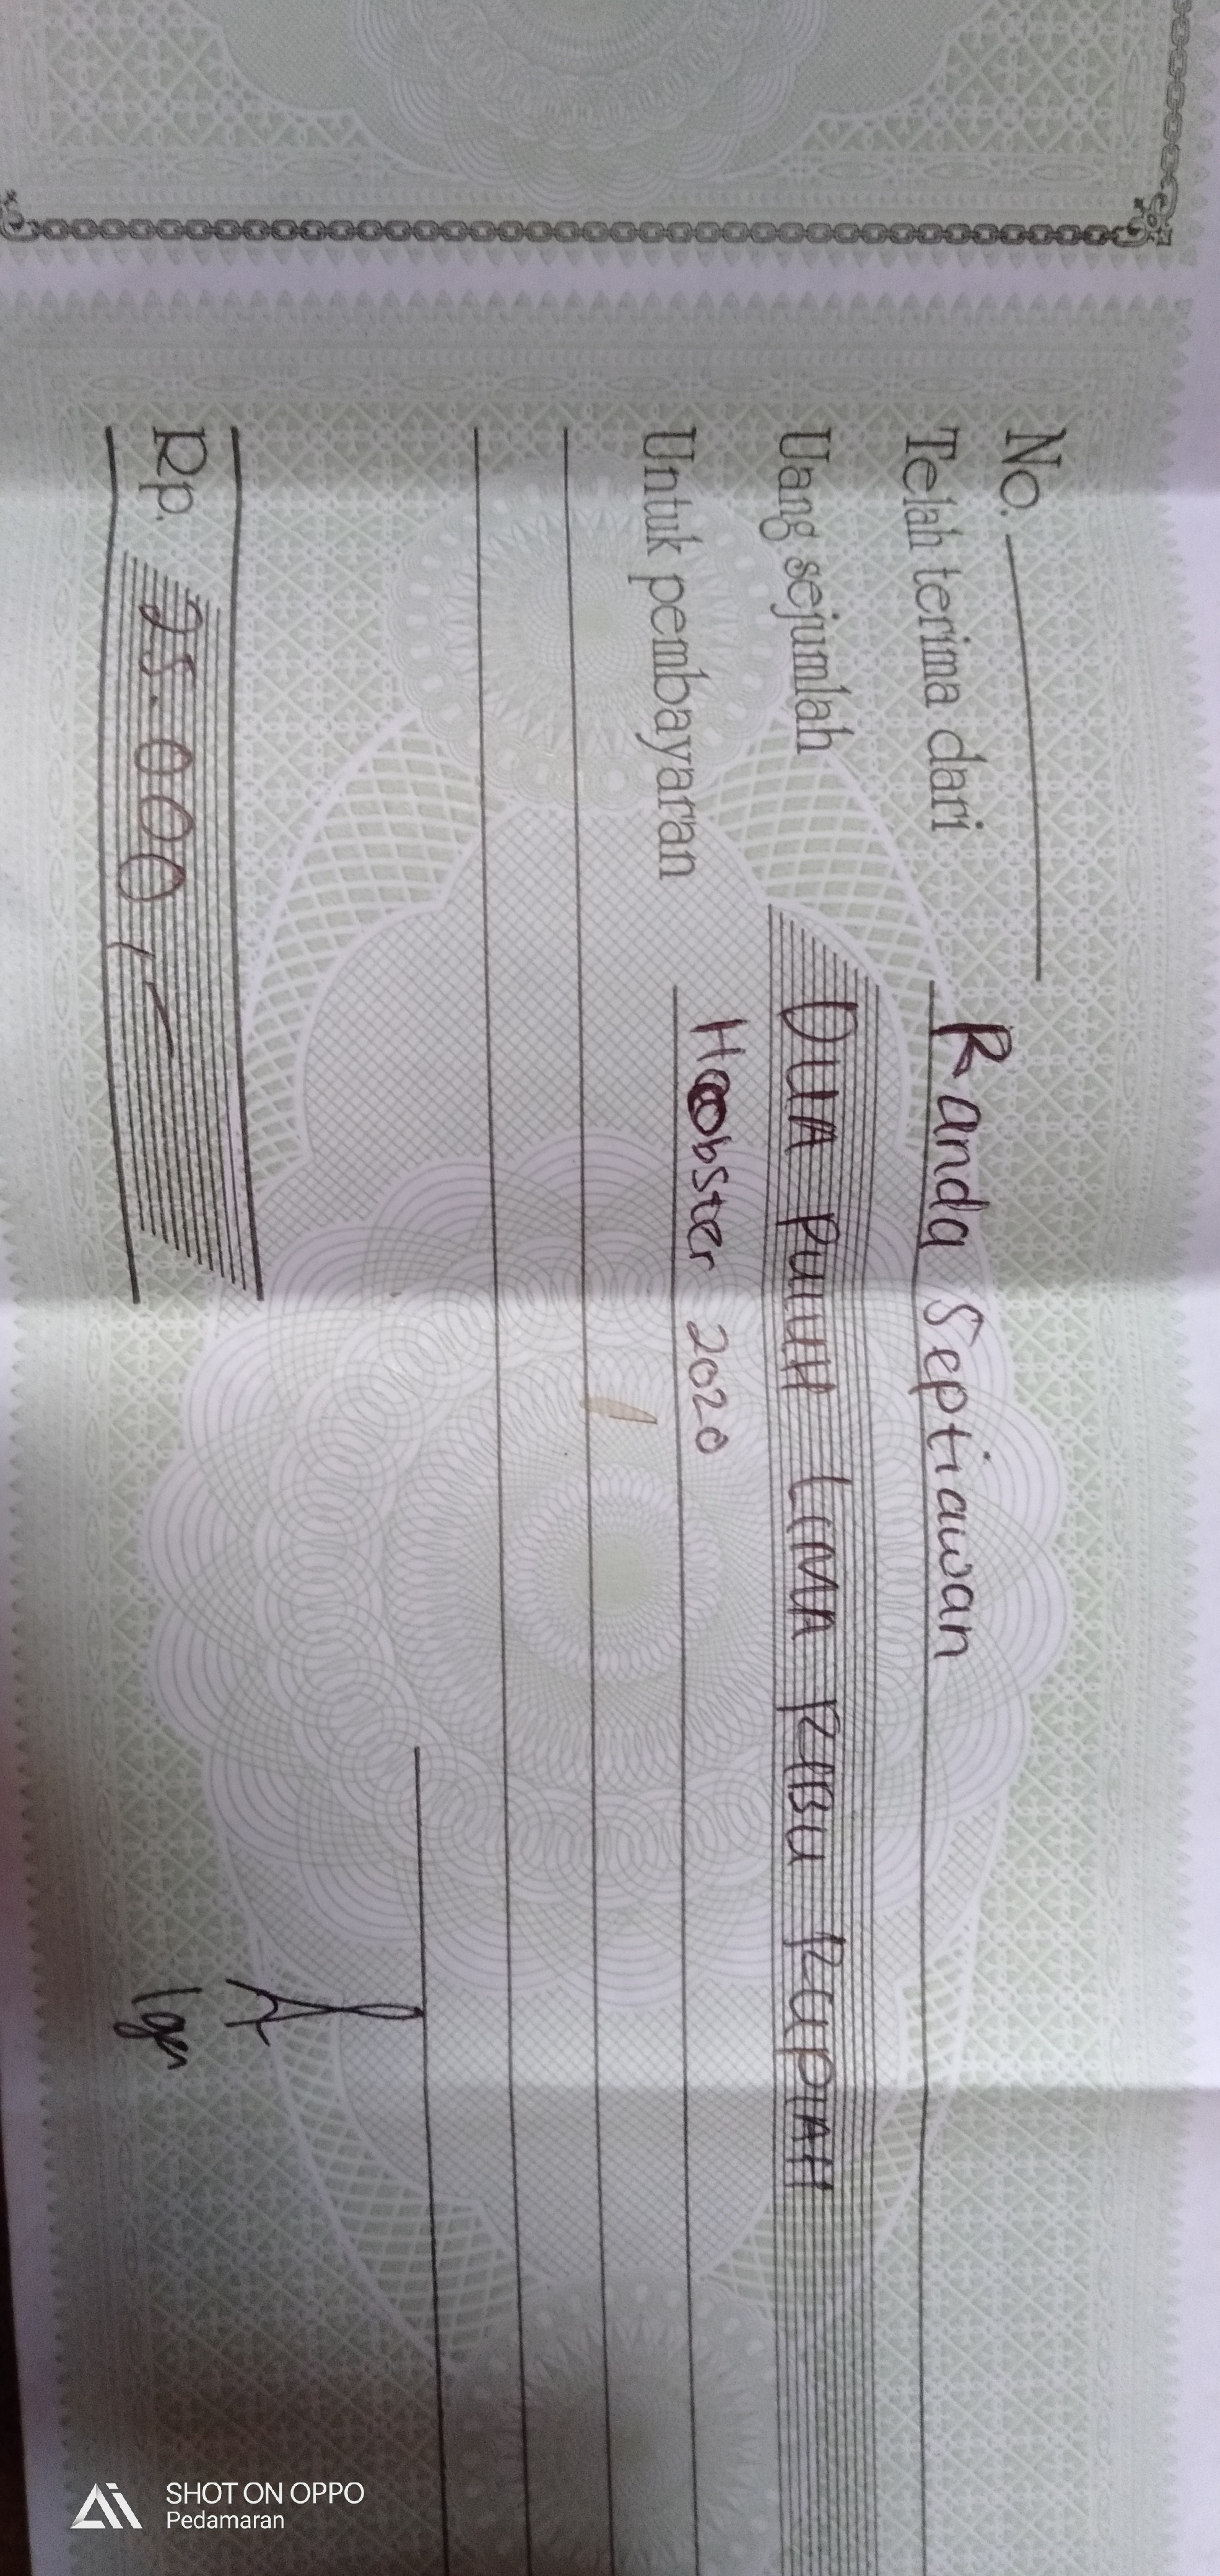 No.
Telah terima dari Randa Septiawan
Uang sejumlah DUA PULUH LIMA RIBU RUPIAH
Untuk pembayaran 2020
Rp. 25.000,-
SHOT ON OPPO
Pedamaran